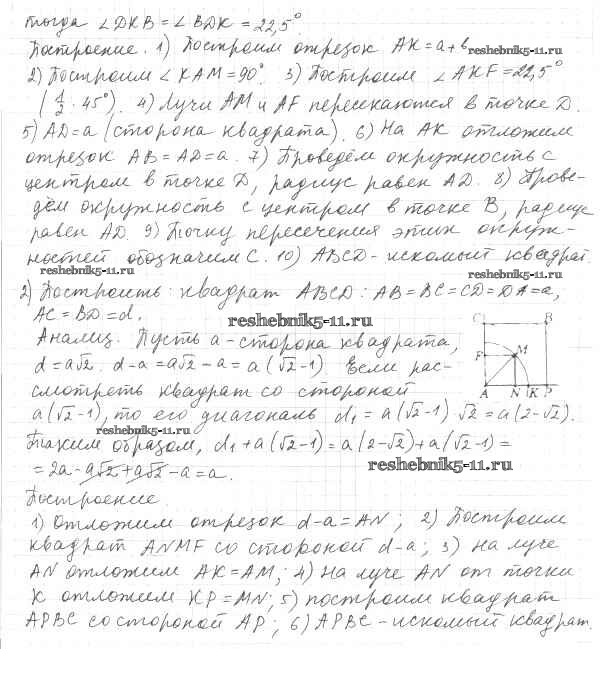 тогда ∠DKB = ∠BDK = 22,5°
Построение. 1) Построим отрезок AK = a + b
reshebnik5-11.ru
2) Построим ∠KAM = 90° 3) Построим ∠AKF = 22,5°
(1/2 · 45°). 4) Лучи AM и AF пересекаются в точке D.
5) AD = a (сторона квадрата). 6) На AK отложим
отрезок AB = AD = a. 7) Проведём окружность с
центром в точке D, радиус равен AD. 8) Прове-
дём окружность с центром в точке B, радиус
равен AD. 9) Точку пересечения этих окруж-
ностей обозначим C. 10) ABCD - искомый квадрат.
reshebnik5-11.ru reshebnik5-11.ru
2) Построить: квадрат ABCD: AB = BC = CD = DA = a,
AC = BD = d.
reshebnik5-11.ru
C B
Анализ. Пусть a - сторона квадрата,
d = a√2. d - a = a√2 - a = a(√2 - 1) Если рас-
F M
смотреть квадрат со стороной
A N K P
a(√2 - 1), то его диагональ d₁ = a(√2 - 1)·√2 = a(2 - √2).
reshebnik5-11.ru
Таким образом, d₁ + a(√2 - 1) = a(2 - √2) + a(√2 - 1) =
= 2a - a√2 + a√2 - a = a.
reshebnik5-11.ru
Построение.
1) Отложим отрезок d - a = AN; 2) Построим
квадрат ANMF со стороной d - a; 3) На луче
AN отложим AK = AM; 4) На луче AN от точки
K отложим KP = MN; 5) построим квадрат
APBC со стороной AP; 6) APBC - искомый квадрат.